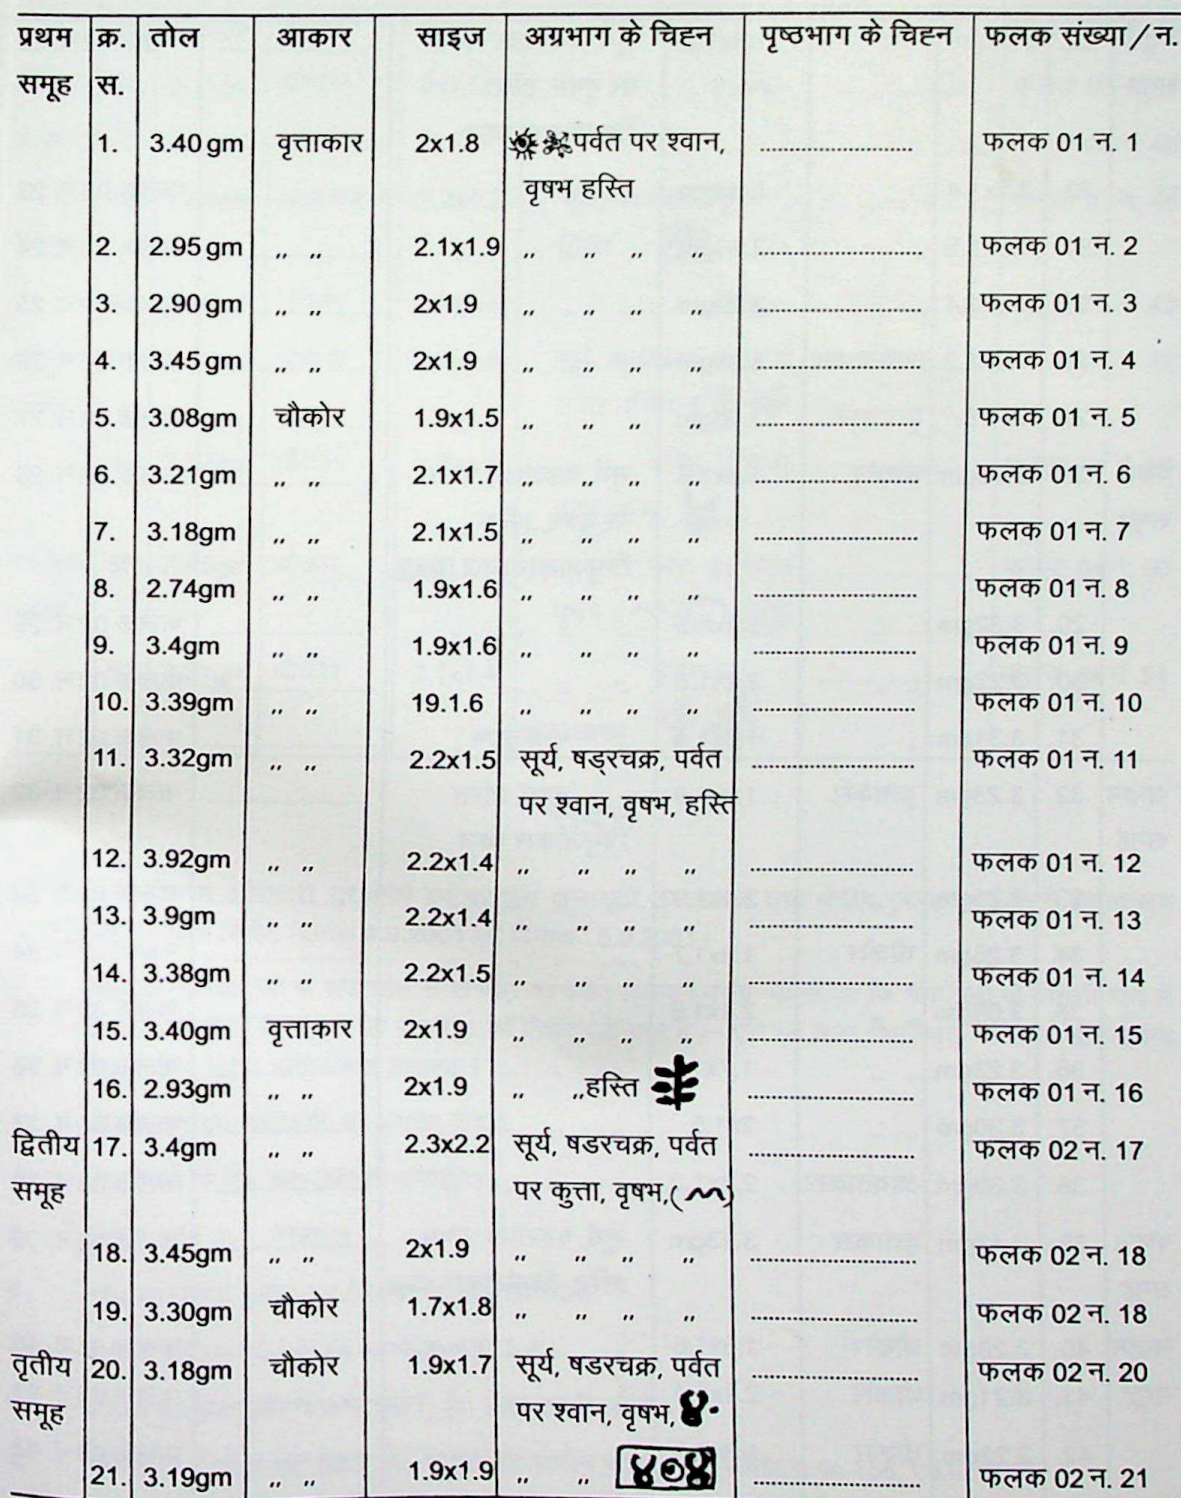 प्रथम क्र. तोल आकार साइज अग्रभाग के चिह्न पृष्ठभाग के चिह्न फलक संख्या/न.
समूह स.
1. 3.40 gm वृत्ताकार 2x1.8 पर्वत पर श्वान, .................... फलक 01 न. 1
वृषभ हस्ति
2. 2.95 gm ,, ,, 2.1x1.9 ,, ,, ,, ,, .................... फलक 01 न. 2
3. 2.90 gm ,, ,, 2x1.9 ,, ,, ,, ,, .................... फलक 01 न. 3
4. 3.45 gm ,, ,, 2x1.9 ,, ,, ,, ,, .................... फलक 01 न. 4
5. 3.08gm चौकोर 1.9x1.5 ,, ,, ,, ,, .................... फलक 01 न. 5
6. 3.21gm ,, ,, 2.1x1.7 ,, ,, ,, ,, .................... फलक 01 न. 6
7. 3.18gm ,, ,, 2.1x1.5 ,, ,, ,, ,, .................... फलक 01 न. 7
8. 2.74gm ,, ,, 1.9x1.6 ,, ,, ,, ,, .................... फलक 01 न. 8
9. 3.4gm ,, ,, 1.9x1.6 ,, ,, ,, ,, .................... फलक 01 न. 9
10. 3.39gm ,, ,, 19.1.6 ,, ,, ,, ,, .................... फलक 01 न. 10
11. 3.32gm ,, ,, 2.2x1.5 सूर्य, षड्रचक्र, पर्वत .................... फलक 01 न. 11
पर श्वान, वृषभ, हस्ति
12. 3.92gm ,, ,, 2.2x1.4 ,, ,, ,, ,, .................... फलक 01 न. 12
13. 3.9gm ,, ,, 2.2x1.4 ,, ,, ,, ,, .................... फलक 01 न. 13
14. 3.38gm ,, ,, 2.2x1.5 ,, ,, ,, ,, .................... फलक 01 न. 14
15. 3.40gm वृत्ताकार 2x1.9 ,, ,, ,, ,, .................... फलक 01 न. 15
16. 2.93gm ,, ,, 2x1.9 ,, ,,हस्ति .................... फलक 01 न. 16
द्वितीय 17. 3.4gm ,, ,, 2.3x2.2 सूर्य, षडरचक्र, पर्वत .................... फलक 02 न. 17
समूह पर कुत्ता, वृषभ,( )
18. 3.45gm ,, ,, 2x1.9 ,, ,, ,, ,, .................... फलक 02 न. 18
19. 3.30gm चौकोर 1.7x1.8 ,, ,, ,, ,, .................... फलक 02 न. 18
तृतीय 20. 3.18gm चौकोर 1.9x1.7 सूर्य, षडरचक्र, पर्वत .................... फलक 02 न. 20
समूह पर श्वान, वृषभ,
21. 3.19gm ,, ,, 1.9x1.9 ,, ,, .................... फलक 02 न. 21